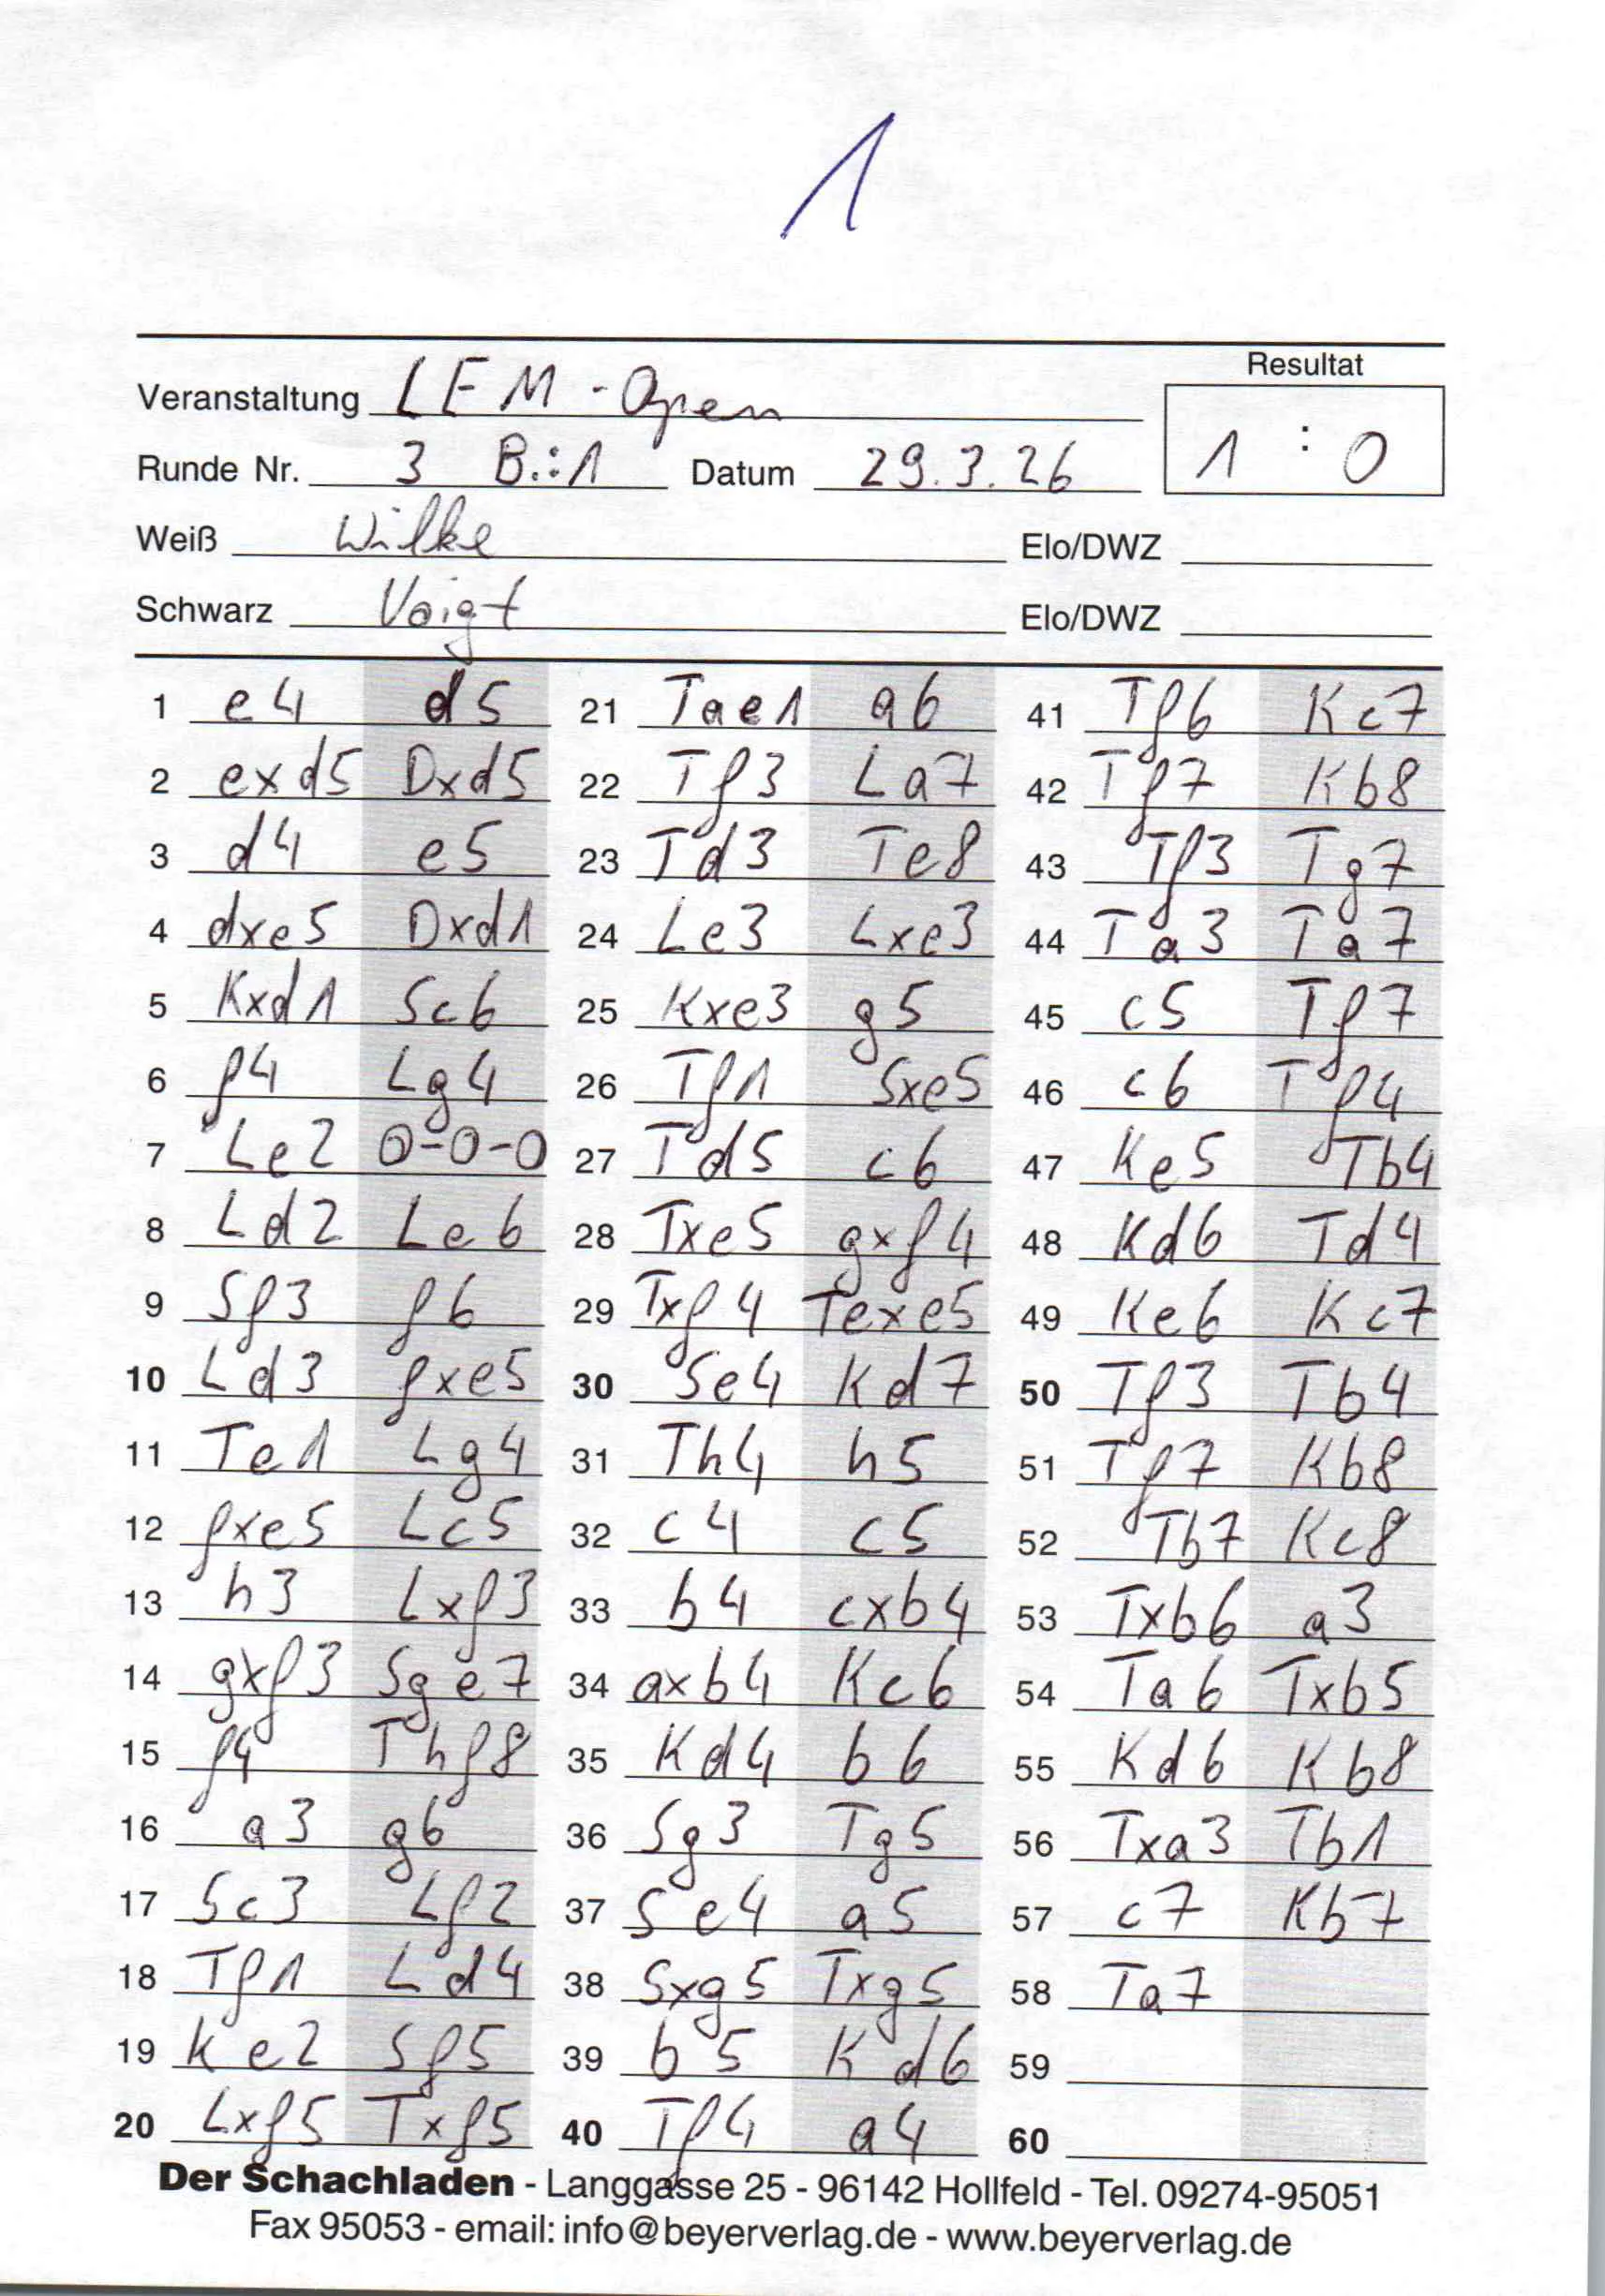 1
Resultat
Veranstaltung LEM - Open
1 : 0
Runde Nr. 3 B.:1 Datum 29.3.26
Weiß Wilke Elo/DWZ
Schwarz Voigt Elo/DWZ
1 e4 d5 21 Tae1 a6 41 Tf6 Kc7
2 exd5 Dxd5 22 Tf3 La7 42 Tf7 Kb8
3 d4 e5 23 Td3 Te8 43 Tf3 Tg7
4 dxe5 Dxd1 24 Le3 Lxe3 44 Ta3 Ta7
5 Kxd1 Sc6 25 Kxe3 g5 45 c5 Tf7
6 f4 Lg4 26 Tf1 Sxe5 46 c6 Tf4
7 Le2 0-0-0 27 Td5 c6 47 Ke5 Tb4
8 Ld2 Le6 28 Txe5 gxf4 48 Kd6 Td4
9 Sf3 f6 29 Txf4 Texe5 49 Ke6 Kc7
10 Ld3 fxe5 30 Se4 Kd7 50 Tf3 Tb4
11 Te1 Lg4 31 Th4 h5 51 Tf7 Kb8
12 fxe5 Lc5 32 c4 c5 52 Tb7 Kc8
13 h3 Lxf3 33 b4 cxb4 53 Txb6 a3
14 gxf3 Sge7 34 axb4 Kc6 54 Ta6 Txb5
15 f4 Thf8 35 Kd4 b6 55 Kd6 Kb8
16 a3 g6 36 Sg3 Tg5 56 Txa3 Tb1
17 Sc3 Lf2 37 Se4 a5 57 c7 Kb7
18 Tf1 Ld4 38 Sxg5 Txg5 58 Ta7
19 Ke2 Sf5 39 b5 Kd6 59
20 Lxf5 Txf5 40 Tf4 a4 60
Der Schachladen - Langgasse 25 - 96142 Hollfeld - Tel. 09274-95051
Fax 95053 - email: info@beyerverlag.de - www.beyerverlag.de